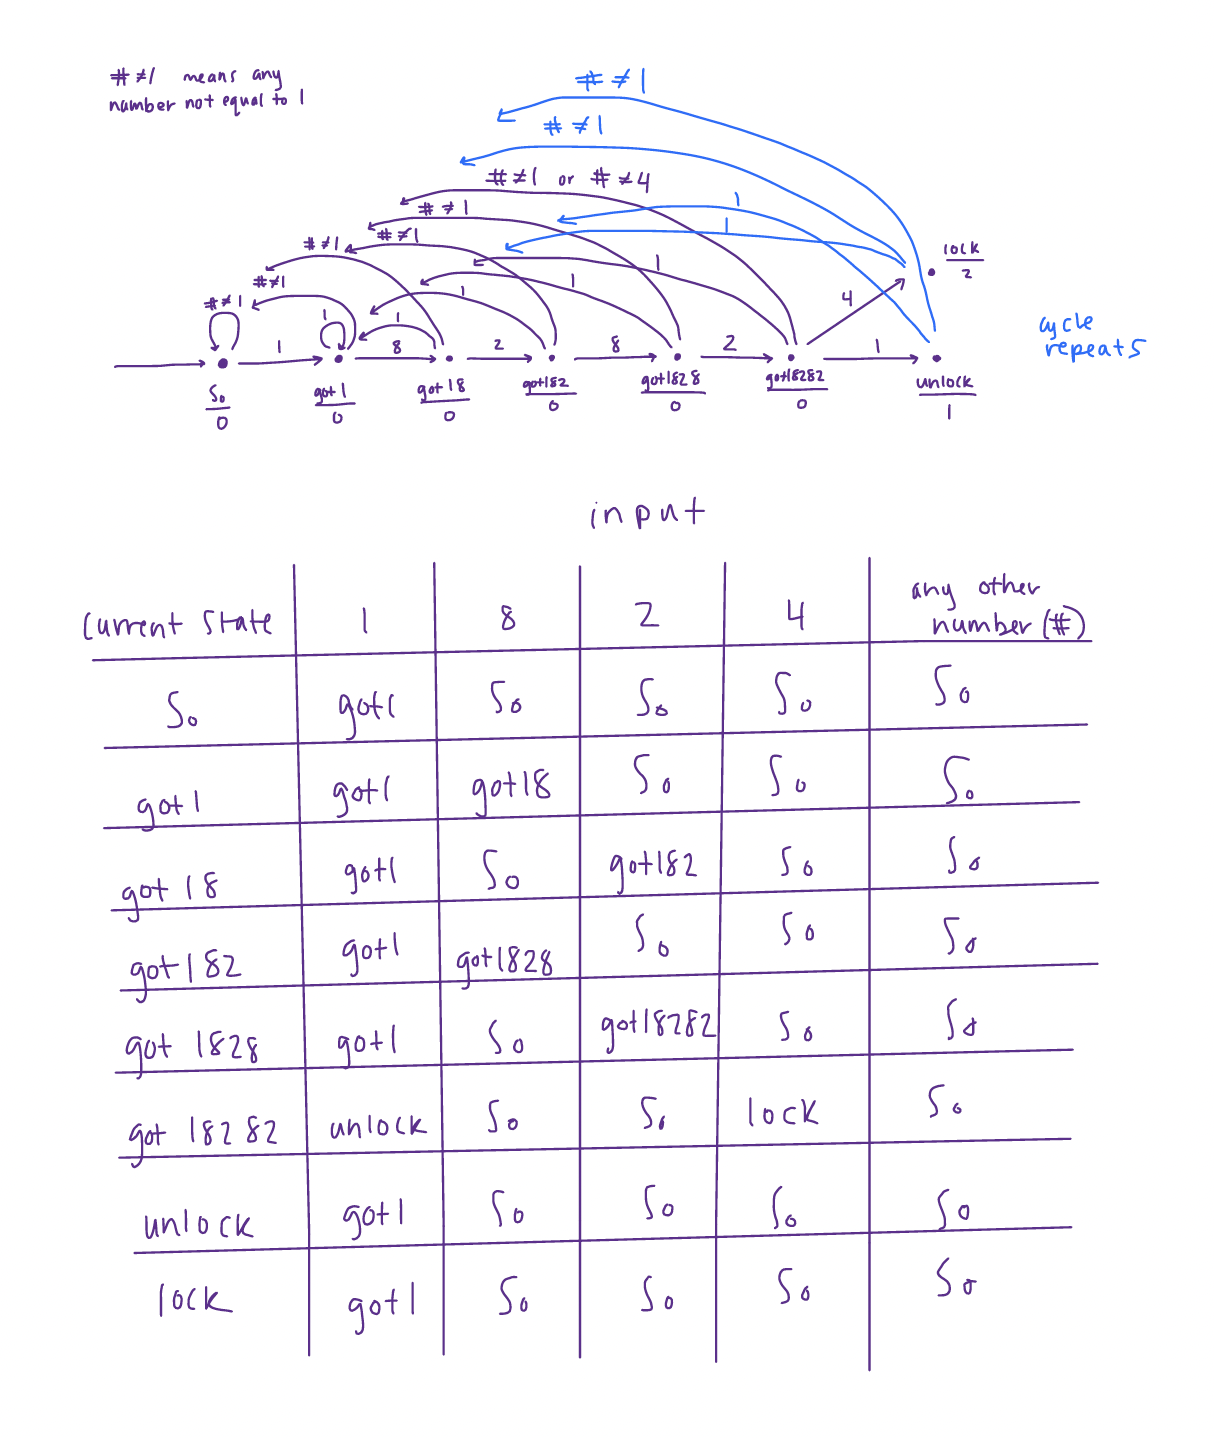 # ≠1 means any
number not equal to 1
# ≠1
# ≠1
# ≠1 or # ≠4
# ≠1
# ≠1
# ≠1
# ≠1
# ≠1
1
1
1
1
1
1
1
1
8
2
8
2
4
1
lock
2
cycle
repeats
S₀
0
got1
0
got18
0
got182
0
got1828
0
got18282
0
unlock
1
input
current state 1 8 2 4 any other number (#)
S₀ got1 S₀ S₀ S₀ S₀
got1 got1 got18 S₀ S₀ S₀
got 18 got1 S₀ got182 S₀ S₀
got182 got1 got1828 S₀ S₀ S₀
got 1828 got1 S₀ got18282 S₀ S₀
got 18282 unlock S₀ S₀ lock S₀
unlock got1 S₀ S₀ S₀ S₀
lock got1 S₀ S₀ S₀ S₀